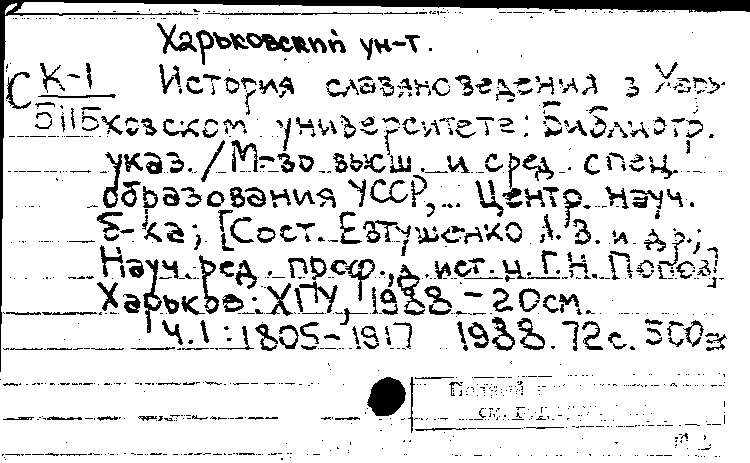 Харьковский ун-т.
С К-1 История славяноведения в Харь-
5115 ковском университете: Библиогр.
указ. / М-во высш. и сред. спец.
образования УССР,... Центр. науч.
б-ка; [Сост. Евтушенко Л.В. и др.;
Науч. ред. проф., д. ист. н. Г.Н. Попов]
Харьков: ХГУ, 1988. - 20см.
Ч.1: 1805-1917 1988. 72с. 500
Полный
см.